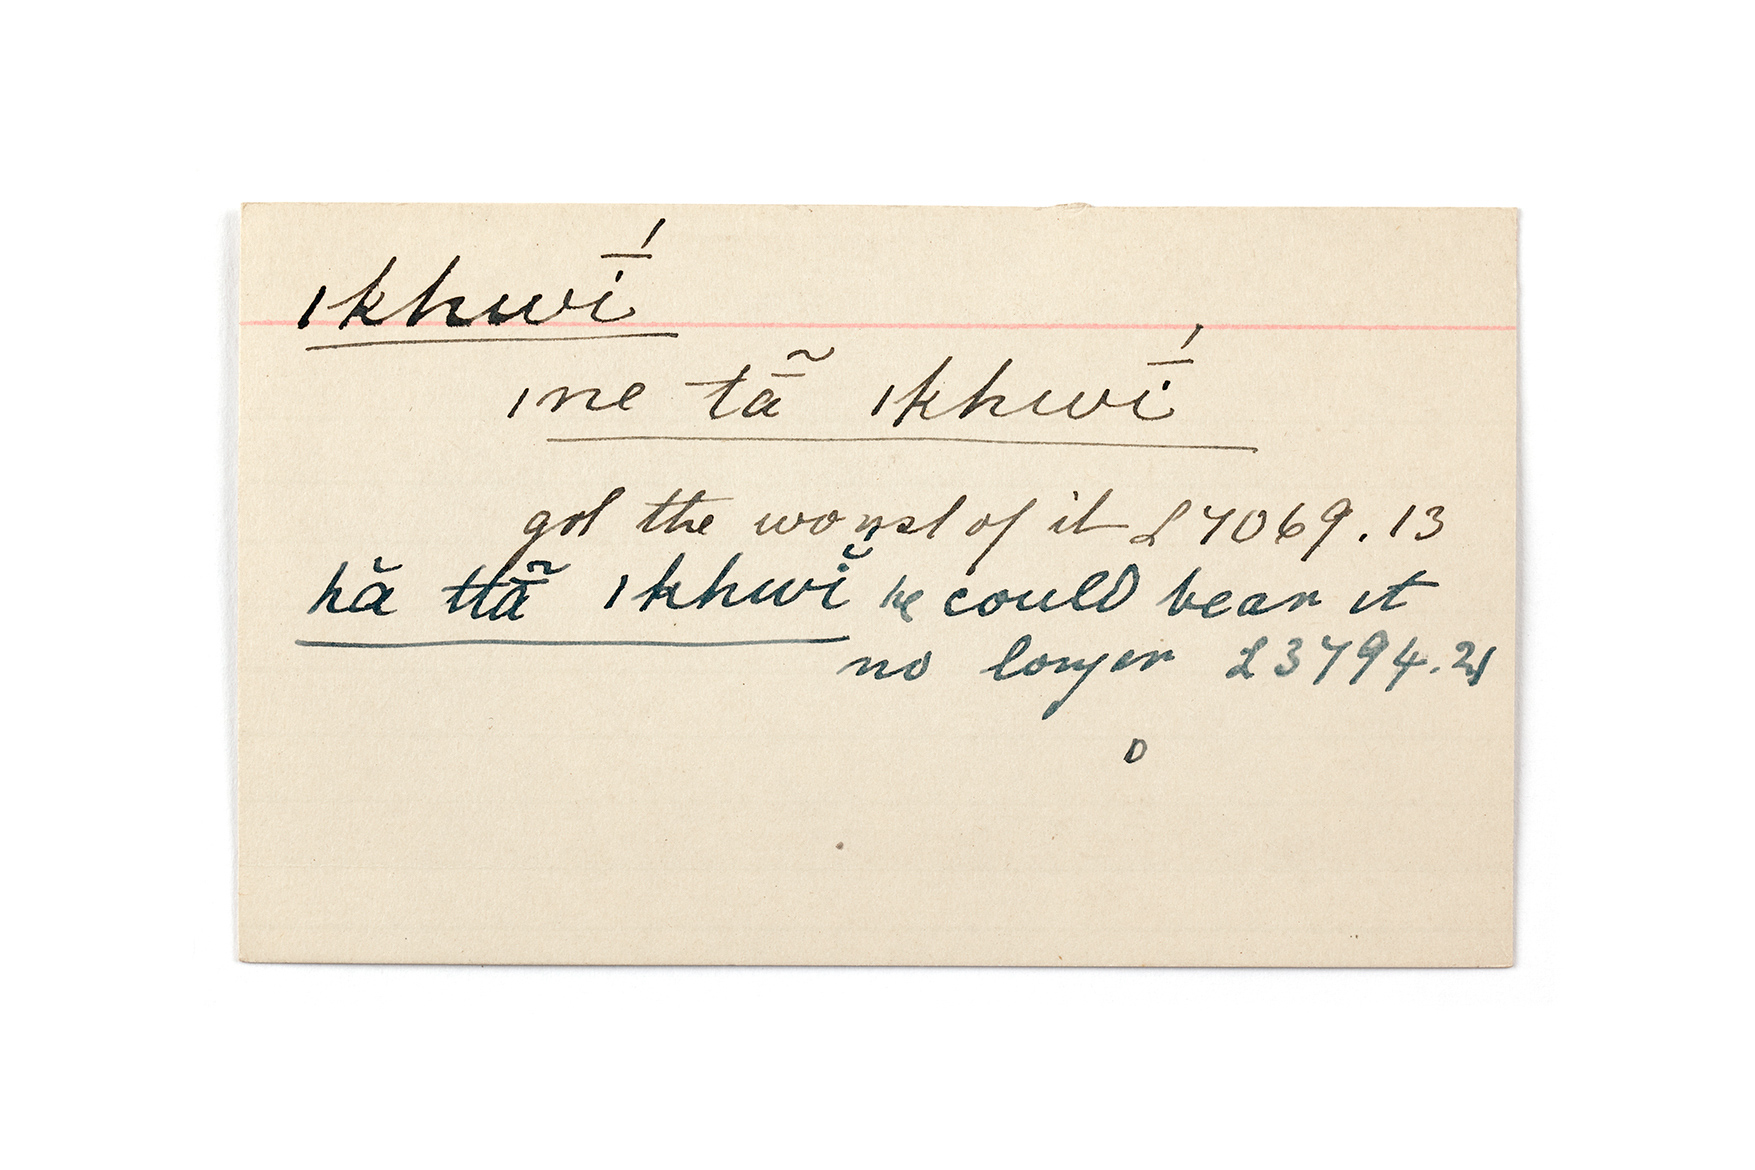 ıkhwī́
ıne tā̃ ıkhwī́
got the worst of it L7069.13
hă ttā̃ ıkhwĭ he could bear it
no longer L3794.21
D